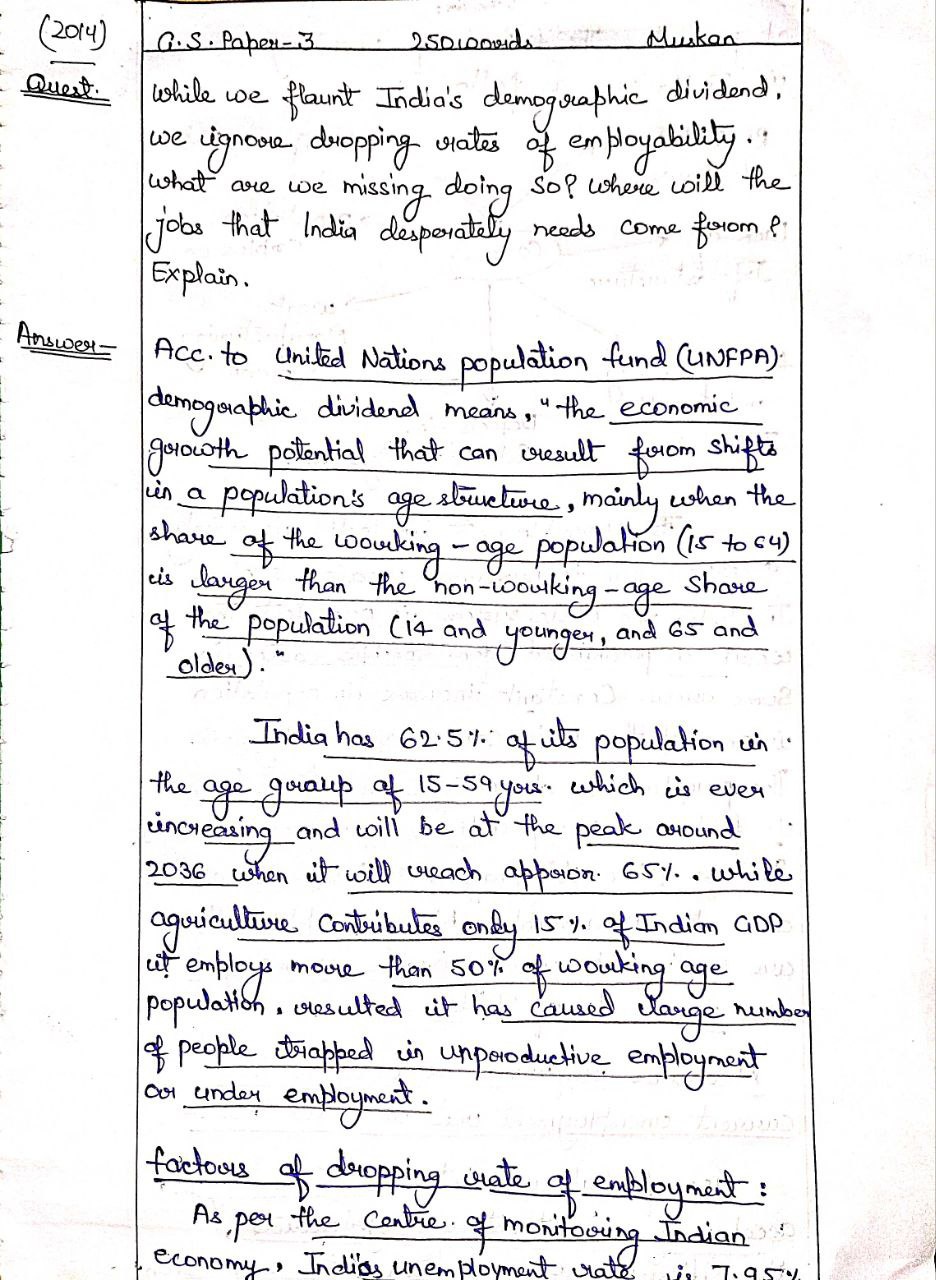 (2014)
G.S. Paper-3 250 words Muskan
Quest.
While we flaunt India's demographic dividend,
we ignore dropping rates of employability.
What are we missing doing so? Where will the
jobs that India desperately needs come from?
Explain.
Answer-
Acc. to United Nations population fund (UNFPA)
demographic dividend means, "the economic
growth potential that can result from shifts
in a population's age structure, mainly when the
share of the working-age population (15 to 64)
is larger than the non-working-age share
of the population (14 and younger, and 65 and
older)."
India has 62.5% of its population in
the age group of 15-59 yrs. which is ever
increasing and will be at the peak around
2036 when it will reach approx. 65%. While
agriculture contributes only 15% of Indian GDP
it employs more than 50% of working age
population, resulted it has caused large number
of people trapped in unproductive employment
or under employment.
factors of dropping rate of employment:
As per the Centre of monitoring Indian
economy, India's unemployment rate is 7.95%